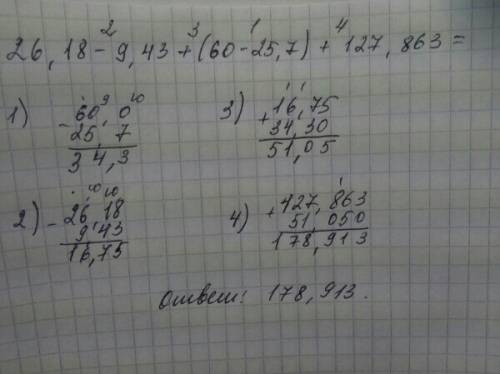 26,18 - 9,43 + (60 - 25,7) + 127,863 =
2 3 1 4
1) 60,0
- 25,7
34,3
3) 16,75
+ 34,30
51,05
2) - 26,18
9,43
16,75
4) + 127,863
51,050
178,913
Ответ: 178,913.